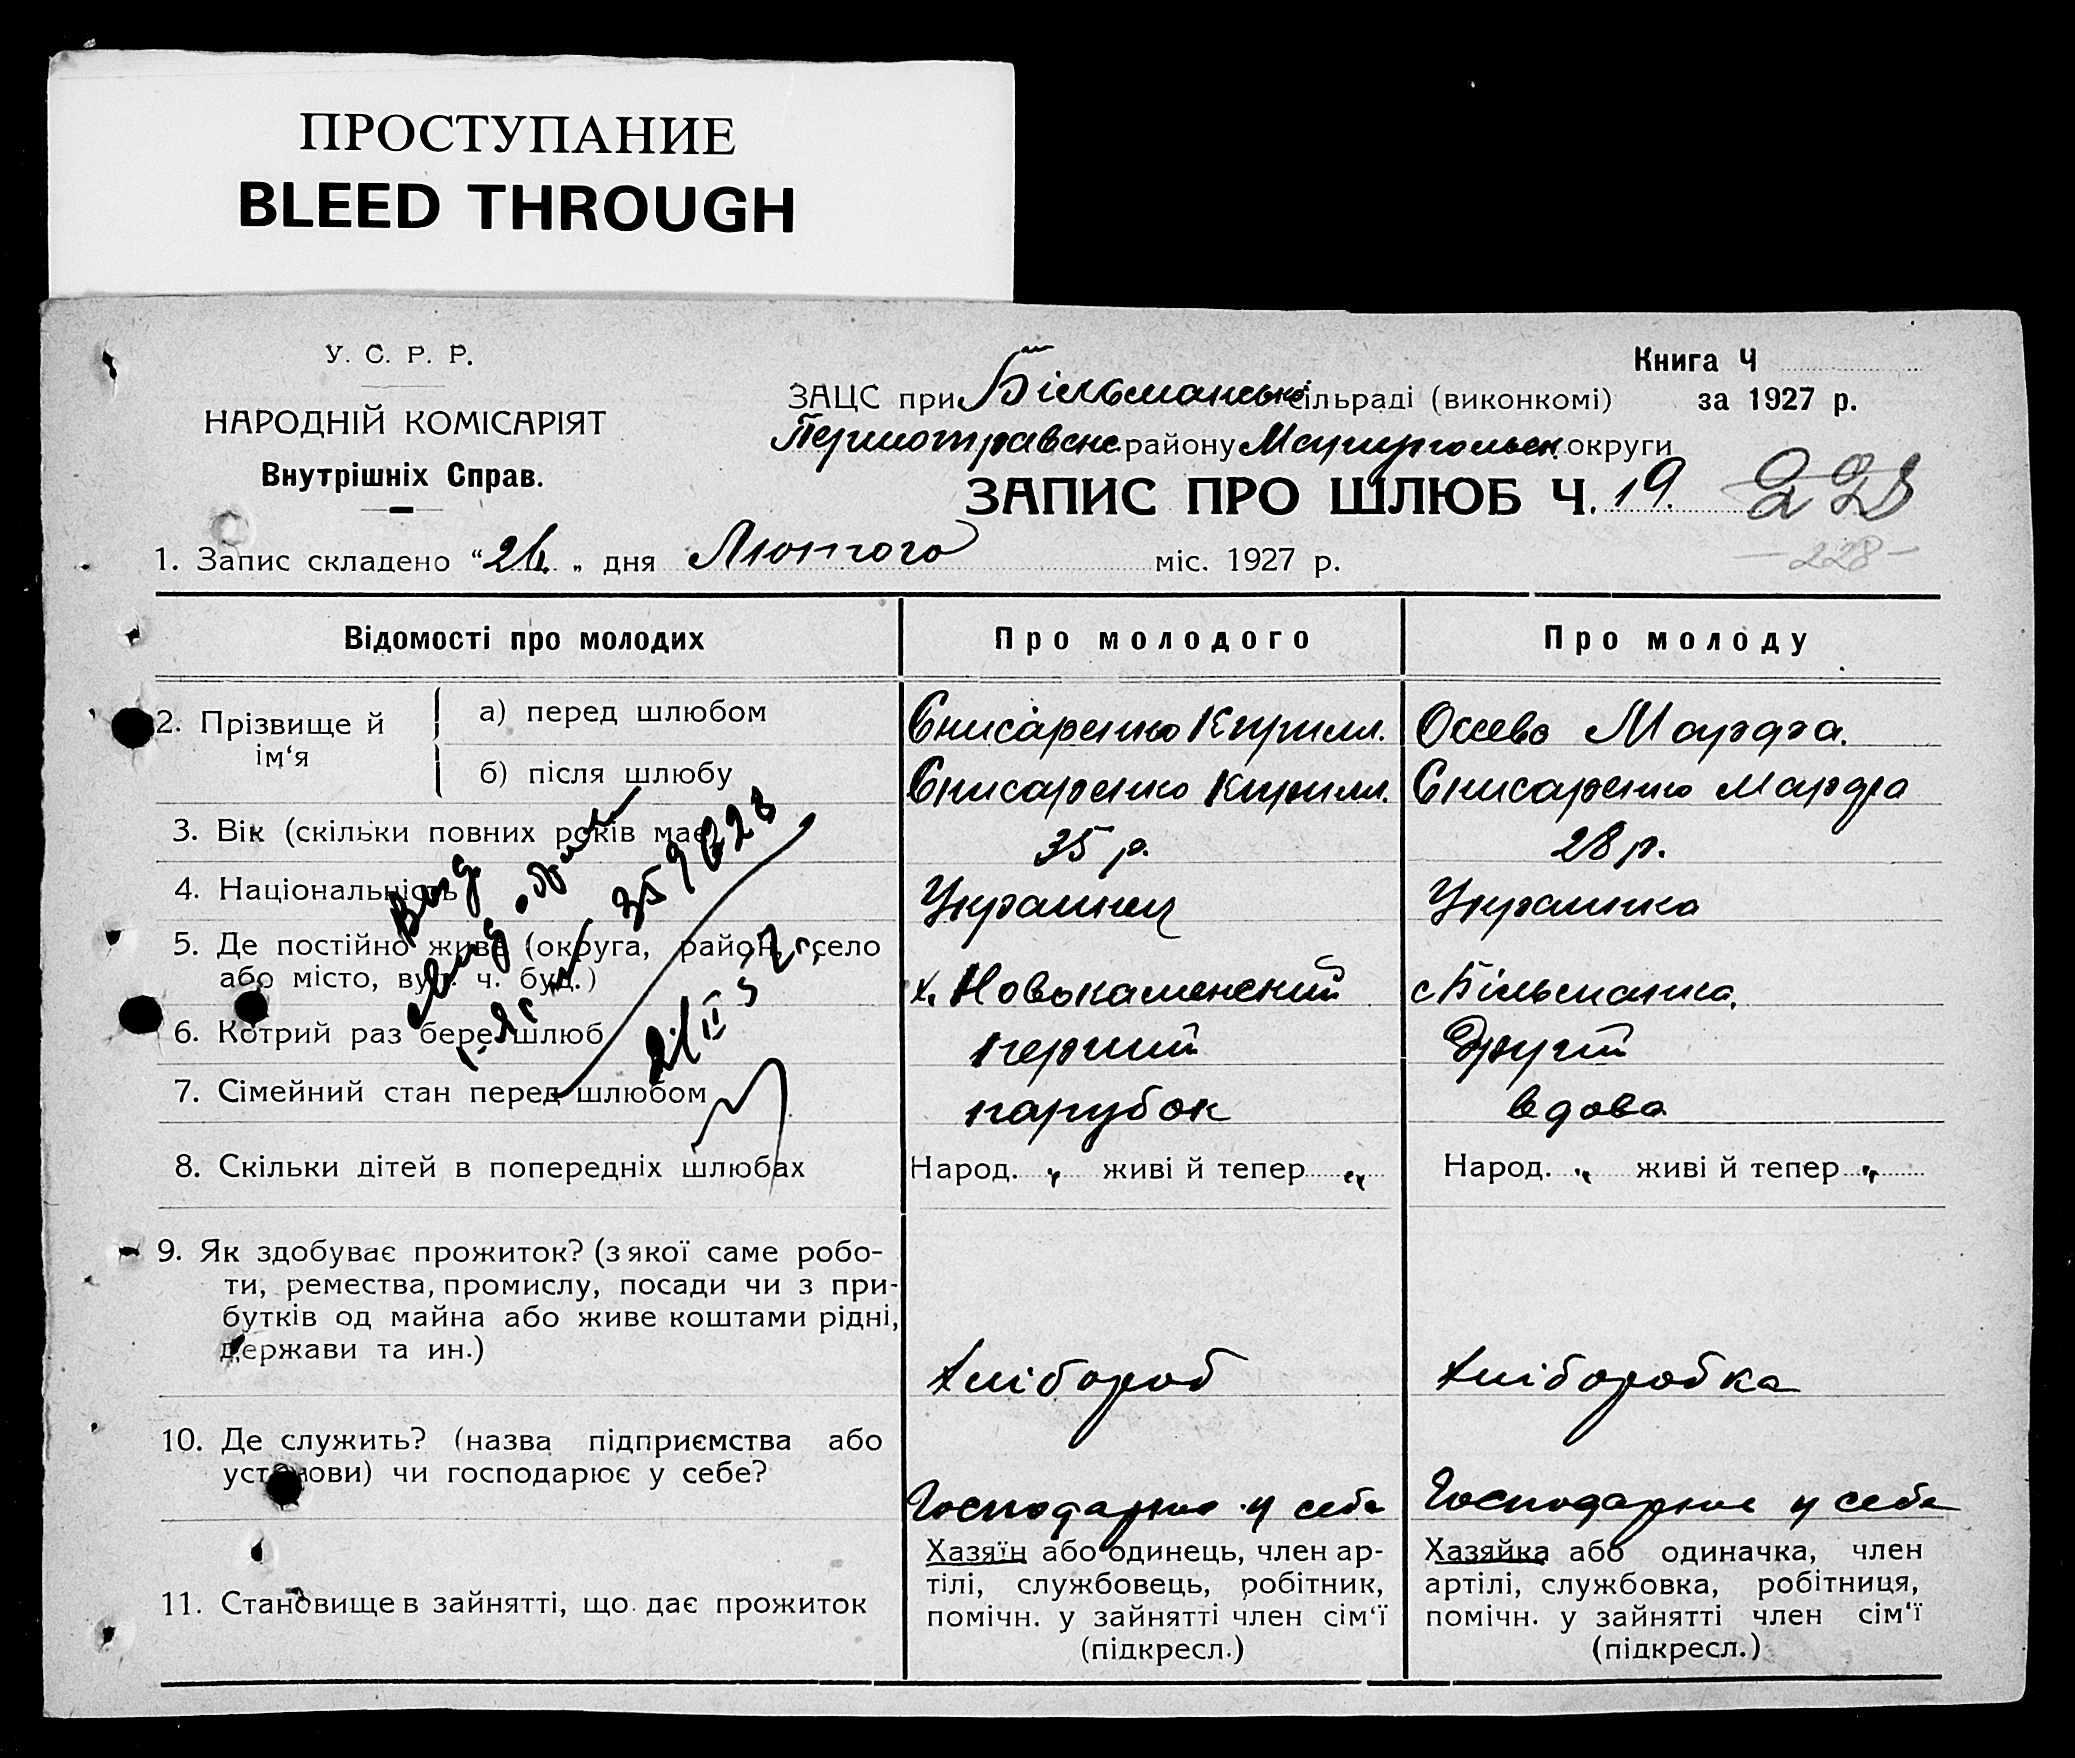 ПРОСТУПАНИЕ
BLEED THROUGH
У. С. Р. Р.
НАРОДНІЙ КОМІСАРІЯТ
Внутрішніх Справ.
Книга Ч
за 1927 р.
ЗАЦС при Більманські сільраді (виконкомі)
Першотравенс. району Маріупольськ. округи
ЗАПИС ПРО ШЛЮБ Ч. 19.
228
- 228 -
1. Запис складено “26. „ дня Лютого міс. 1927 р.
Відомості про молодих Про молодого Про молоду
2. Прізвище й ім‘я
а) перед шлюбом Снисаренко Кирилл. Осева Марфа.
б) після шлюбу Снисаренко Кирилл. Снисаренко Марфа
3. Вік (скільки повних років має) 35 р. 28 р.
4. Національність Украинец Украинка
5. Де постійно живе (округа, район, село
або місто, вул. ч. буд.) х. Новокаменский с Більманка.
6. Котрий раз бере шлюб перший Другий
7. Сімейний стан перед шлюбом парубок вдова
8. Скільки дітей в попередніх шлюбах Народ. „ живі й тепер „ Народ. „ живі й тепер „
9. Як здобуває прожиток? (з якої саме робо-
ти, ремества, промислу, посади чи з при-
бутків од майна або живе коштами рідні,
держави та ин.) Хлібороб Хліборобка
10. Де служить? (назва підприємства або
установи) чи господарює у себе?
Господарює у себе Господарює у себе
11. Становище в зайнятті, що дає прожиток
Хазяїн або одинець, член ар-
тілі, службовець, робітник,
помічн. у зайнятті член сім‘ї
(підкресл.)
Хазяйка або одиначка, член
артілі, службовка, робітниця,
помічн. у зайнятті член сім‘ї
(підкресл.)